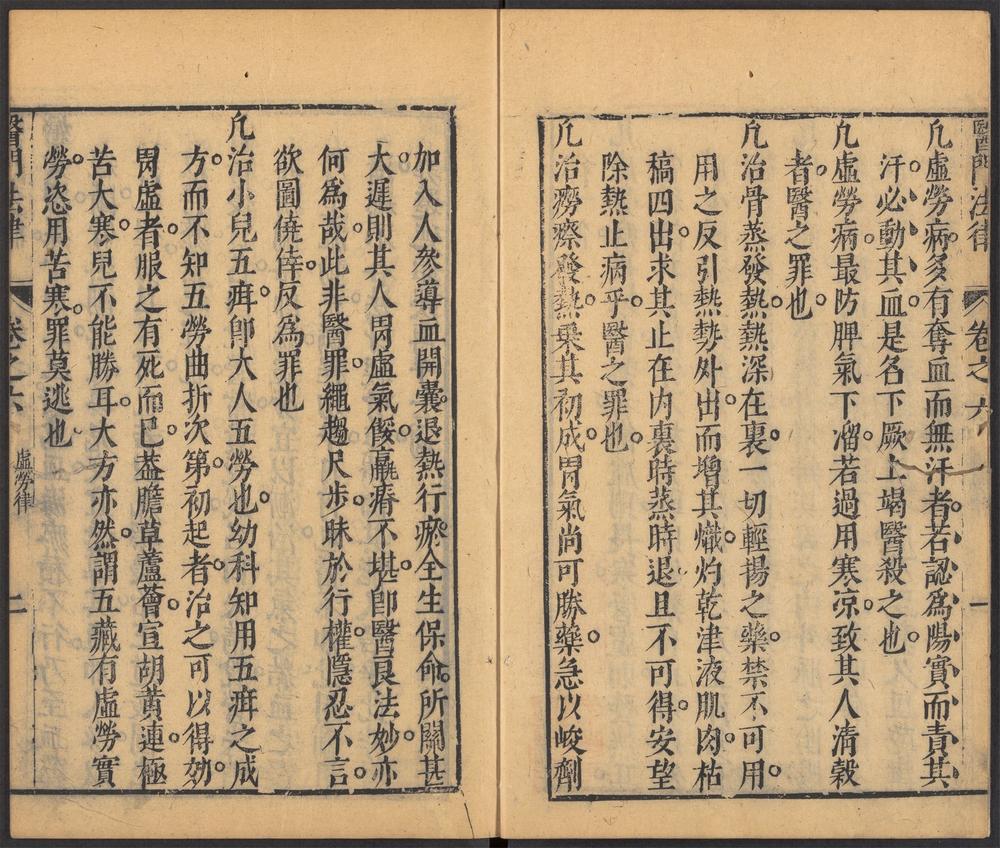 醫門法律 卷之六 一
凡虛勞病多有奪血而無汗者若認爲陽實而責其
汗必動其血是名下厥上竭醫殺之也
凡虛勞病最防脾氣下溜若過用寒涼致其人清穀
者醫之罪也
凡治骨蒸發熱熱深在裏一切輕揚之藥禁不可用
用之反引熱勢外出而增其熾灼乾津液肌肉枯
稿四出求其止在内裏時蒸時退且不可得安望
除熱止病乎醫之罪也
凡治癆瘵發熱乘其初成胃氣尚可勝藥急以峻劑
加入人參導血開囊退熱行瘀全生保命所關甚
大遲則其人胃虛氣餒羸瘠不堪卽醫良法妙亦
何爲哉此非醫罪繩趨尺步昧於行權隱忍不言
欲圖僥倖反爲罪也
凡治小兒五疳卽大人五勞也幼科知用五疳之成
方而不知五勞曲折次第初起者治之可以得効
胃虛者服之有死而已葢膽草蘆薈宣胡黃連極
苦大寒兒不能勝耳大方亦然謂五藏有虛勞實
勞恣用苦寒罪莫逃也
醫門法律 卷之六 虛勞律 二